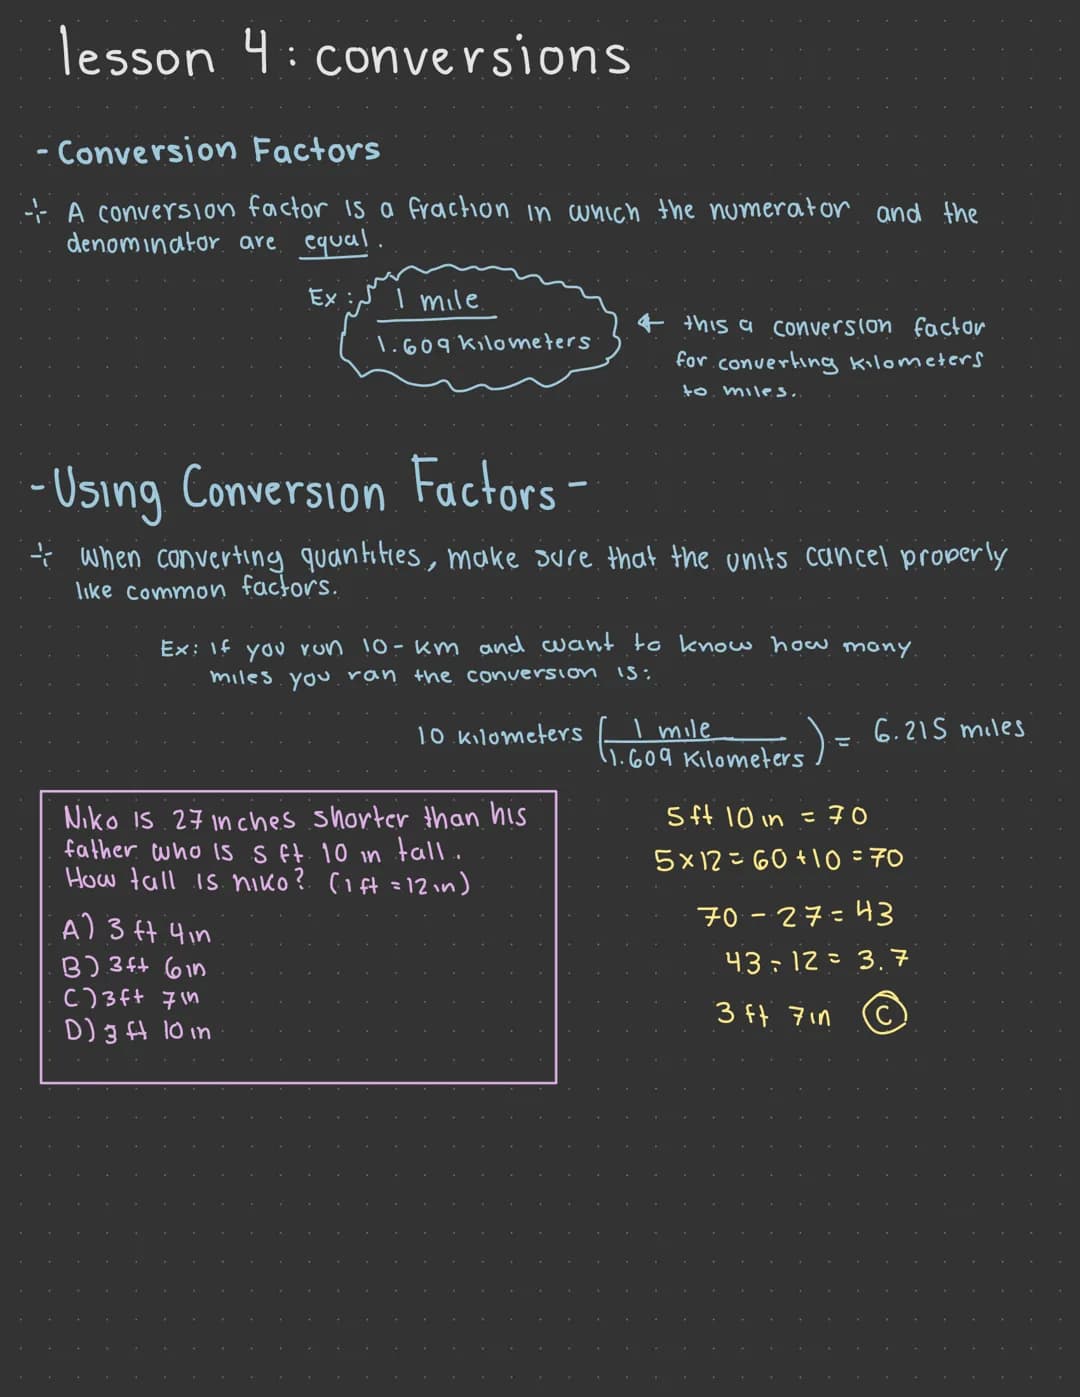 lesson 4: conversions
- Conversion Factors
A conversion factor is a fraction in which the numerator and the
denominator are equal.
Ex: 1 mile
1.609 kilometers
← this a conversion factor
for converting kilometers
to miles.
- Using Conversion Factors -
When converting quantities, make sure that the units cancel properly
like common factors.
Ex: If you run 10-km and want to know how many
miles you ran the conversion is:
10 kilometers ( 1 mile / 1.609 kilometers ) = 6.215 miles
Niko is 27 inches shorter than his
father who is 5 ft 10 in tall.
How tall is niko? (1 ft = 12 in)
A) 3 ft 4 in
B) 3 ft 6 in
C) 3 ft 7 in
D) 3 ft 10 in
5 ft 10 in = 70
5 x 12 = 60 + 10 = 70
70 - 27 = 43
43 ÷ 12 = 3.7
3 ft 7 in C